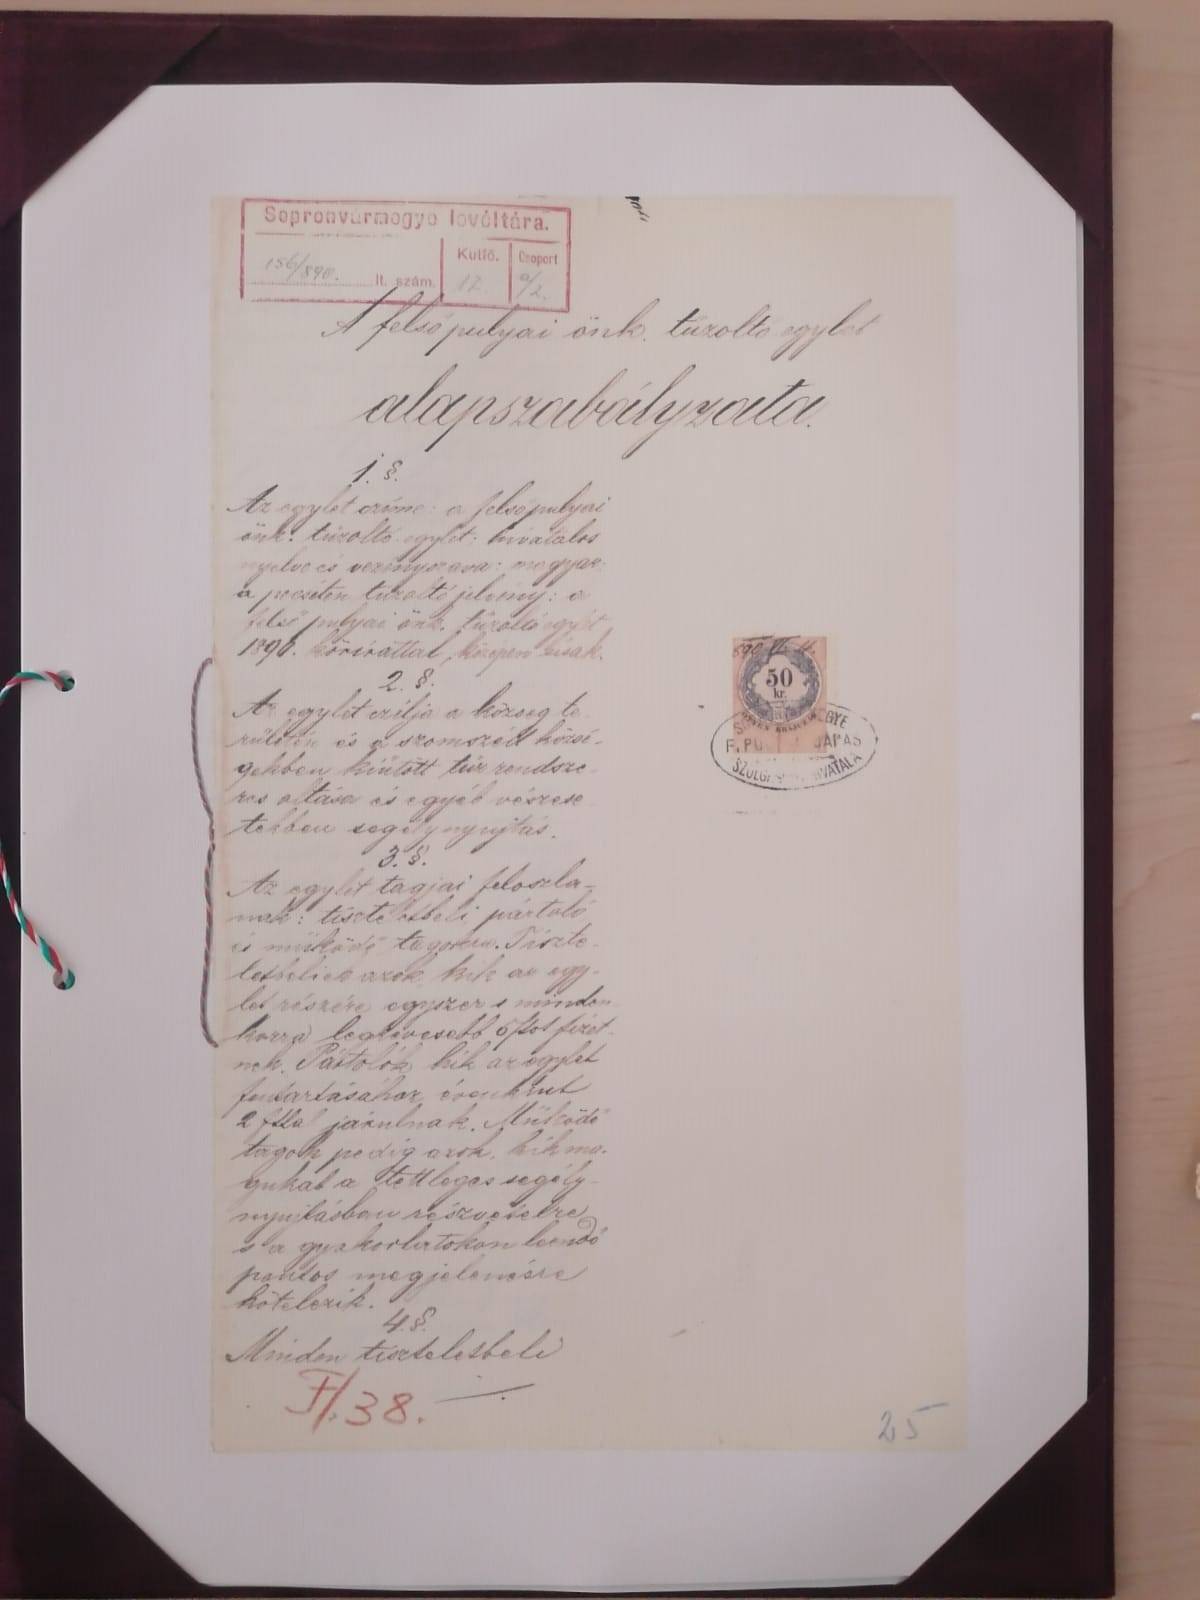 Sopronvármegye levéltára.
156/890. lt. szám.
Kútfő. 17.
Csoport a/2.
A felsőpulyai önk. tűzoltó egylet
alapszabályzata.
1. §.
Az egylet czíme: a felsőpulyai
önk. tűzoltó egylet: hivatalos
nyelve és vezényszava: magyar:
a pecséten tűzoltó jelvény: a
felső pulyai önk. tűzoltó egylet
1890. körirattal, közepén sisak.
2. §.
Az egylet czélja a község te-
rületén és a szomszéd közsé-
gekben kiütött tűz rendsze-
res oltása és egyéb vészese-
tekben segélynyujtás.
3. §.
Az egylet tagjai feloszla-
nak: tiszteletbeli, pártoló
és működő tagokra. Tiszte-
letbeliek azok, kik az egy-
let részére egyszer s minden-
korra legkevesebb 5 ftot fizet-
nek. Pártolók, kik az egylet
fentartásához évenként
2 fttal járulnak. Működő
tagok pedig azok, kik ma-
gukat a tettleges segély-
nyujtásban részvételre
s a gyakorlatokon leendő
pontos megjelenésre
kötelezik.
4. §.
Minden tiszteletbeli
890 VI
50
kr.
F. PU JÁRÁS
HIVATALA
F/.38.
25